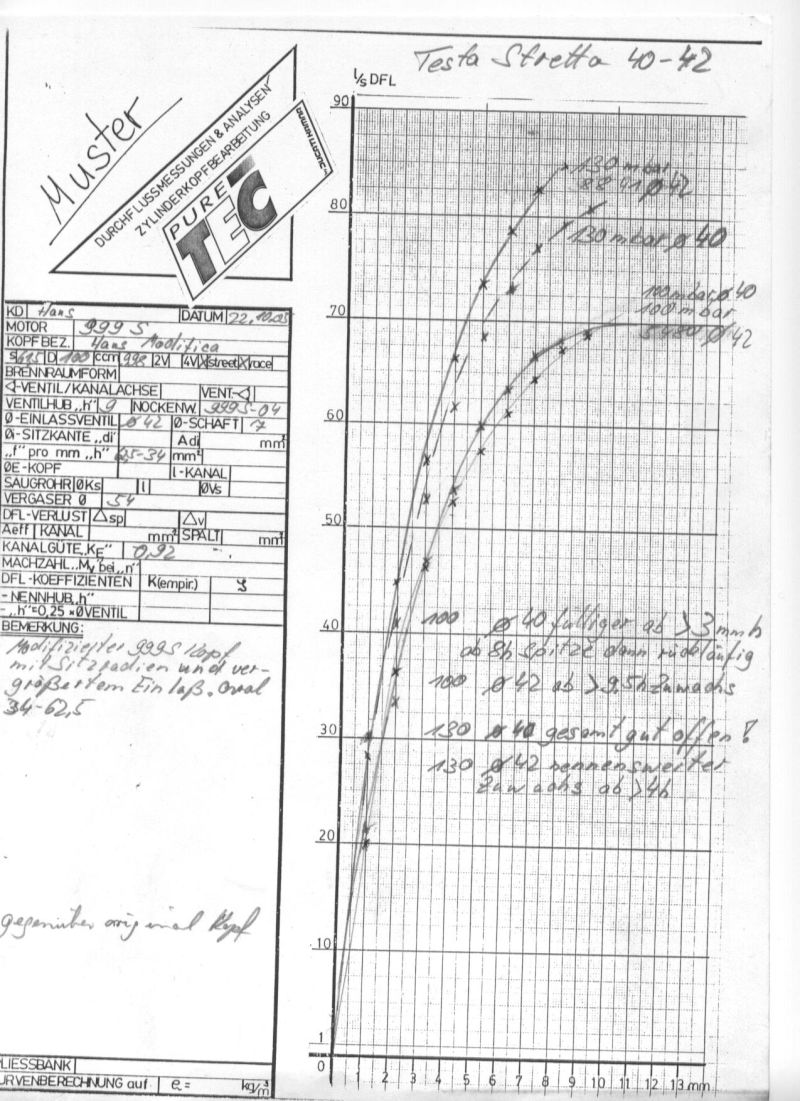 Testa Stretta 40-42
l/s DFL
Muster
DURCHFLUSSMESSUNGEN & ANALYSEN
ZYLINDERKOPFBEARBEITUNG
PURE
TEC
KD Hans DATUM 22.10.05
MOTOR 999 S
KOPFBEZ. Hans Modifica
S 61,5 D 100 ccm 998 2V 4V X street X race
BRENNRAUMFORM
◁-VENTIL/KANALACHSE VENT.-◁
VENTILHUB „h" 9 NOCKENW. 999S-04
Ø-EINLASSVENTIL ø 42 Ø-SCHAFT 7
Øi-SITZKANTE „di" Adi mm²
„f" pro mm „h" 62,5-34 mm²
ØE-KOPF l-KANAL
SAUGROHR ØKs l ØVs
VERGASER Ø 54
DFL-VERLUST △sp △v
Aeff KANAL mm² SPALT mm²
KANALGÜTE „KE" 0,92
MACHZAHL „Mv bei „n"
DFL-KOEFFIZIENTEN K(empir.) ς
-NENNHUB „h"
- „h"=0,25 × ØVENTIL
BEMERKUNG:
Modifizierter 999S Kopf
mit Sitzradien und ver-
größertem Einlaß. Oval
34-62,5
gegenüber original Kopf
LIESSBANK
URVENBERECHNUNG auf ϱ = kg/m³
90
80
70
60
50
40
30
20
10
1
0
1 2 3 4 5 6 7 8 9 10 11 12 13 mm
130 mbar
88 91 ø 42
130 mbar ø 40
100 mbar ø 40
100 mbar
5480 ø 42
100 ø 40 fülliger ab >3mm h
ab 8h Spitze dann rückläufig
100 ø 42 ab >9,5h Zuwachs
130 ø 40 gesamt gut offen!
130 ø 42 nennenswerter
Zuwachs ab >4h